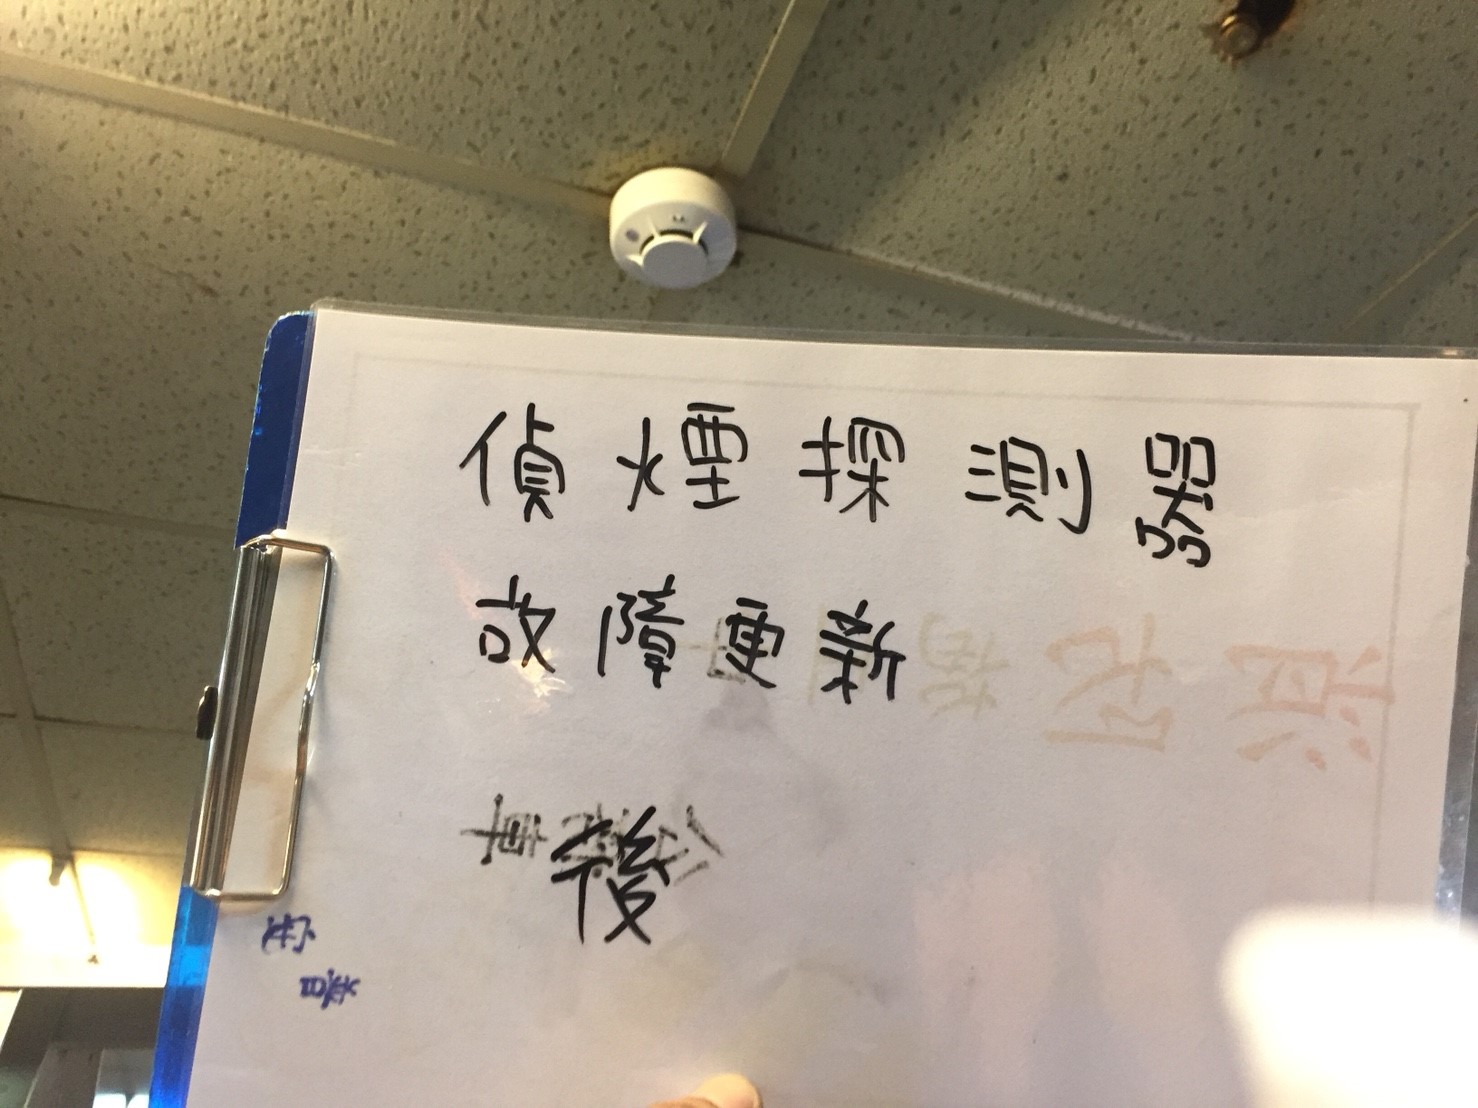 偵煙探測器
故障更新
後